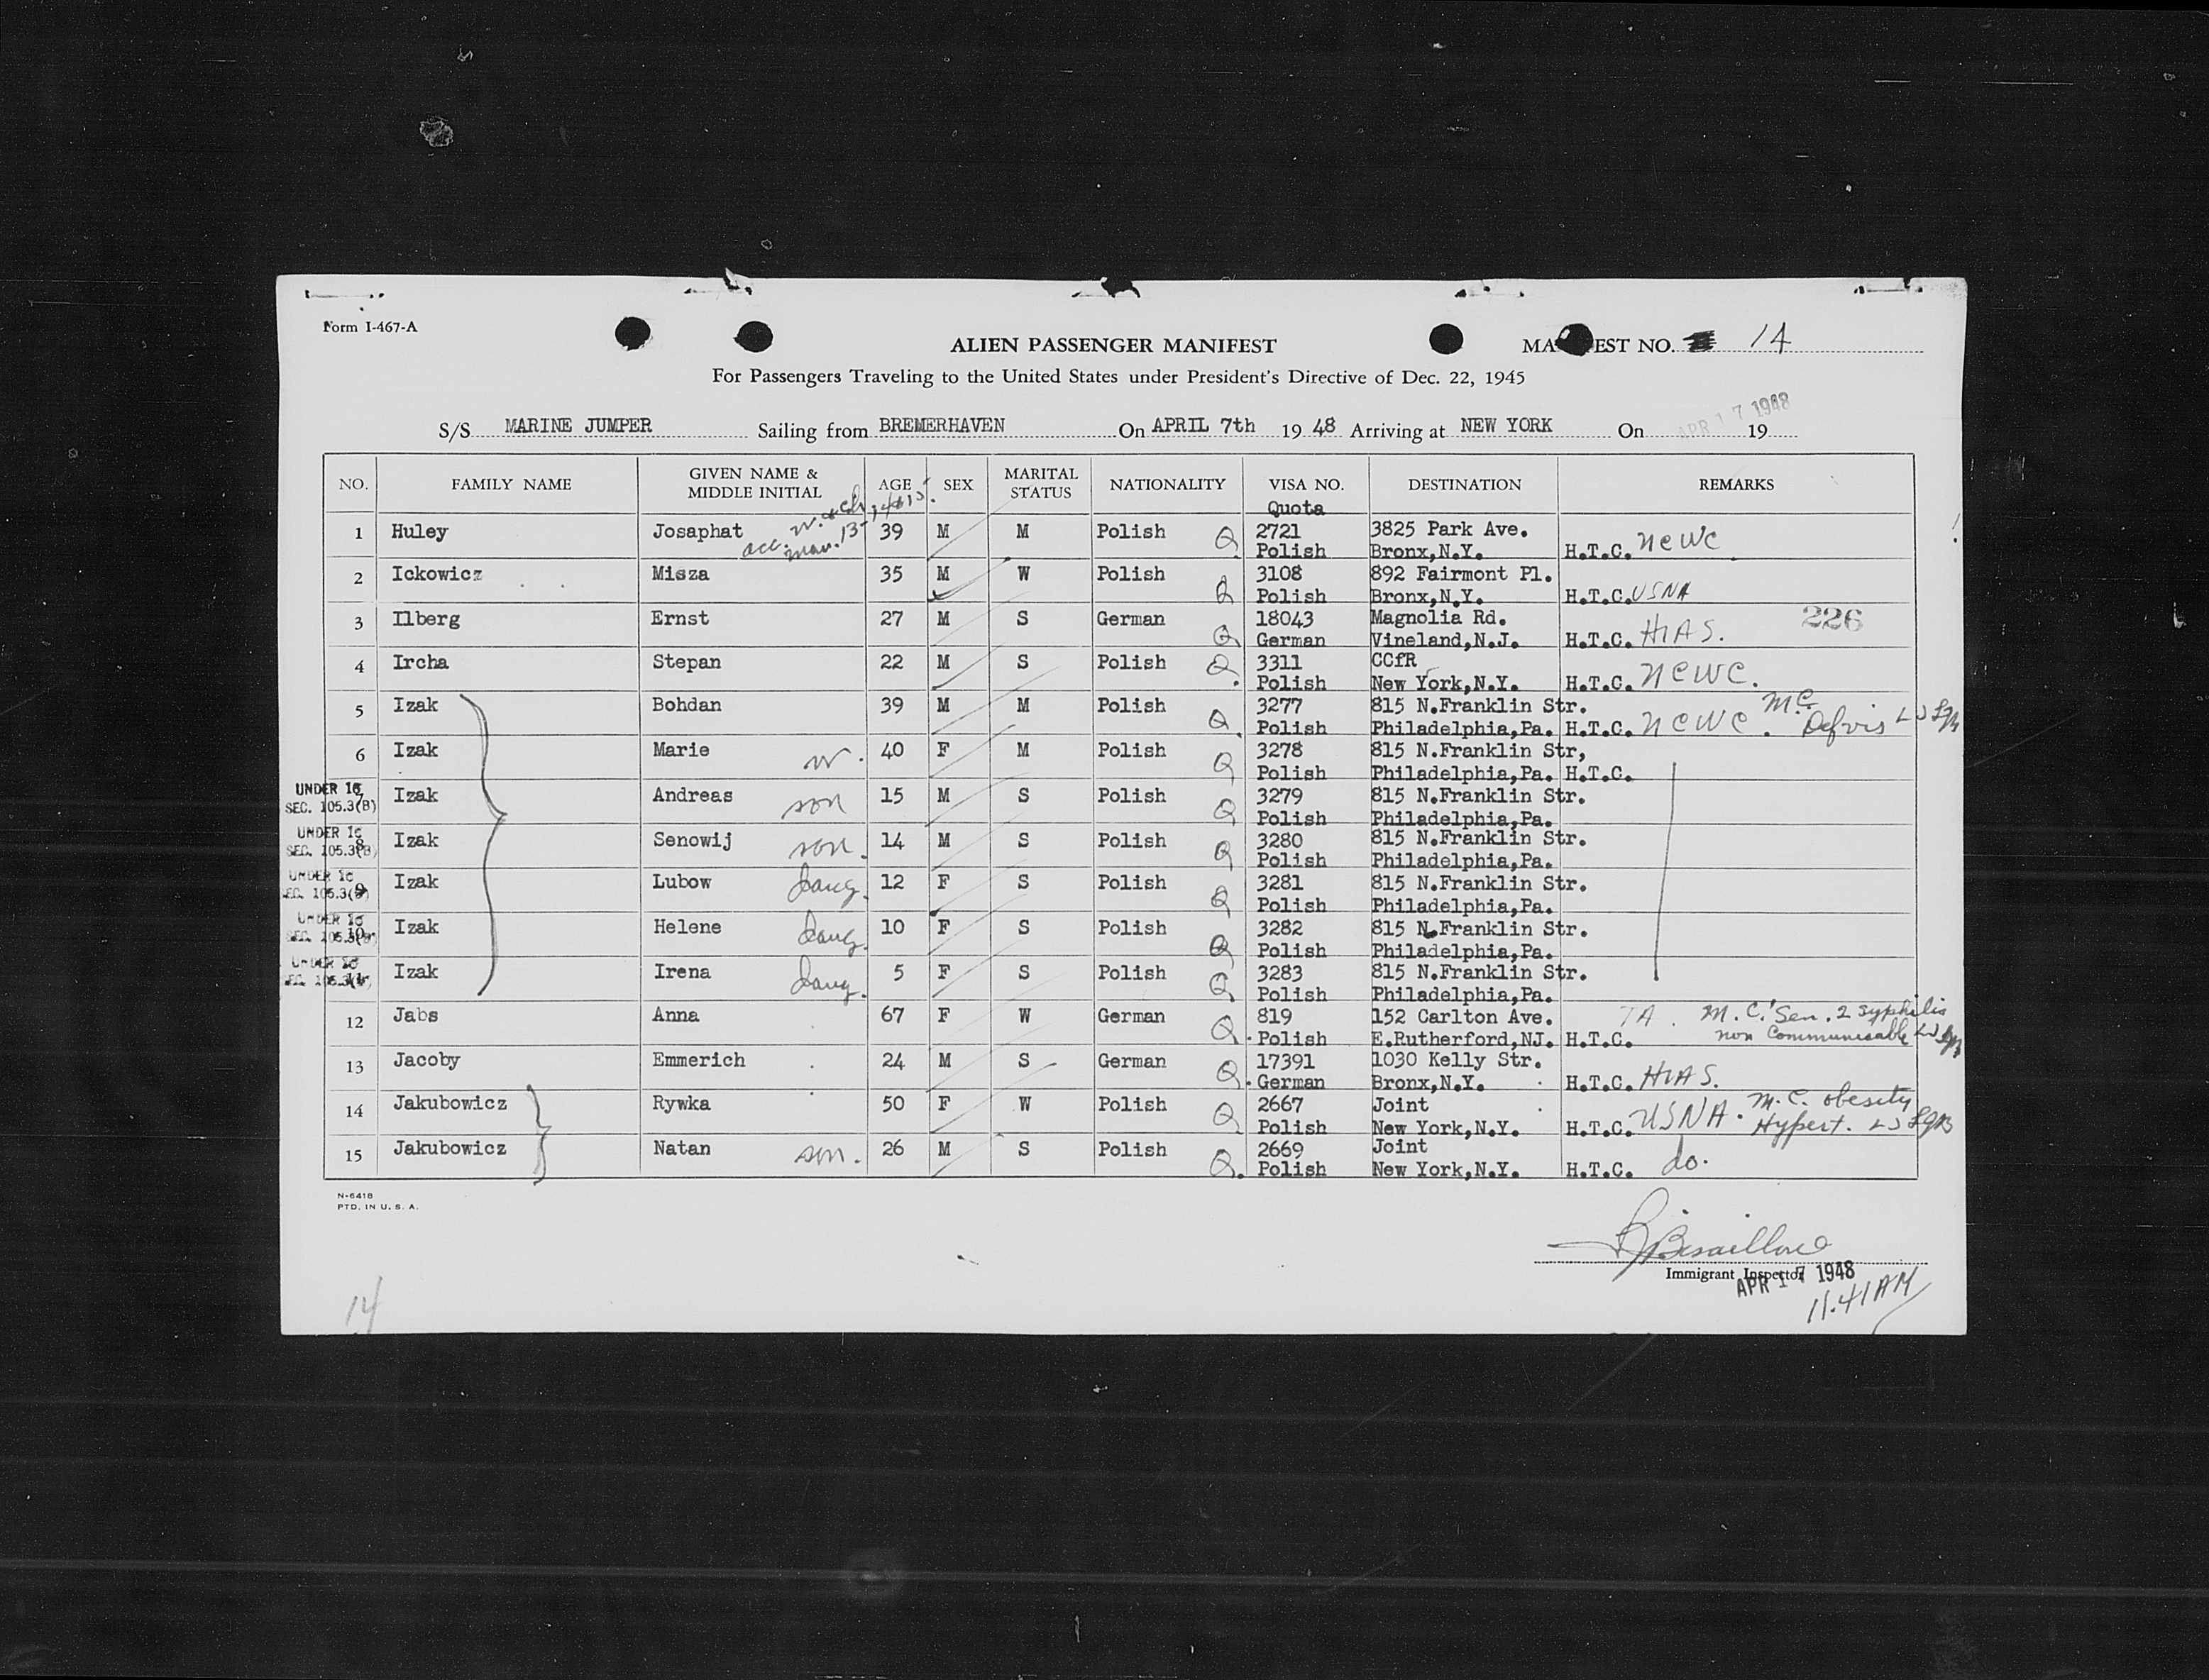 Form I-467-A
ALIEN PASSENGER MANIFEST
MA EST NO. 14
For Passengers Traveling to the United States under President's Directive of Dec. 22, 1945
S/S MARINE JUMPER Sailing from BREMERHAVEN On APRIL 7th 19 48 Arriving at NEW YORK On APR 17 1948 19
NO. FAMILY NAME GIVEN NAME & MIDDLE INITIAL AGE SEX MARITAL STATUS NATIONALITY VISA NO. DESTINATION REMARKS
Quota
acc. w. & ch. man. 13-14&15.
1 Huley Josaphat 39 M M Polish Q 2721 3825 Park Ave.
Polish Bronx,N.Y. H.T.C. NCWC
2 Ickowicz Misza 35 M W Polish Q 3108 892 Fairmont Pl.
Polish Bronx,N.Y. H.T.C. USNA
3 Ilberg Ernst 27 M S German Q 18043 Magnolia Rd. 226
German Vineland,N.J. H.T.C. HIAS.
4 Ircha Stepan 22 M S Polish Q 3311 CCfR
Polish New York,N.Y. H.T.C. NCWC.
5 Izak Bohdan 39 M M Polish Q 3277 815 N.Franklin Str. M.C.
Polish Philadelphia,Pa. H.T.C. NCWC. Defvis
6 Izak Marie w. 40 F M Polish Q 3278 815 N.Franklin Str,
Polish Philadelphia,Pa. H.T.C.
UNDER 16
SEC. 105.3(B)
7 Izak Andreas son 15 M S Polish Q 3279 815 N.Franklin Str.
Polish Philadelphia,Pa.
UNDER 16
SEC. 105.3(B)
8 Izak Senowij son. 14 M S Polish Q 3280 815 N.Franklin Str.
Polish Philadelphia,Pa.
UNDER 16
SEC. 105.3(B)
9 Izak Lubow daug. 12 F S Polish Q 3281 815 N.Franklin Str.
Polish Philadelphia,Pa.
UNDER 16
SEC. 105.3(B)
10 Izak Helene daug. 10 F S Polish Q 3282 815 N.Franklin Str.
Polish Philadelphia,Pa.
UNDER 16
SEC. 105.3(B)
11 Izak Irena daug. 5 F S Polish Q 3283 815 N.Franklin Str.
Polish Philadelphia,Pa.
12 Jabs Anna 67 F W German Q. 819 152 Carlton Ave. TA. M.C. Sen. 2 Syphilis
Polish E.Rutherford,NJ. H.T.C. non Communicable
13 Jacoby Emmerich 24 M S German Q. 17391 1030 Kelly Str.
German Bronx,N.Y. H.T.C. HIAS.
14 Jakubowicz Rywka 50 F W Polish Q 2667 Joint M.C. obesity
Polish New York,N.Y. H.T.C. USNA. Hypert.
15 Jakubowicz Natan son. 26 M S Polish Q. 2669 Joint
Polish New York,N.Y. H.T.C. do.
N-6418
PTD. IN U. S. A.
Immigrant Inspector
APR 17 1948
11.41AM
14